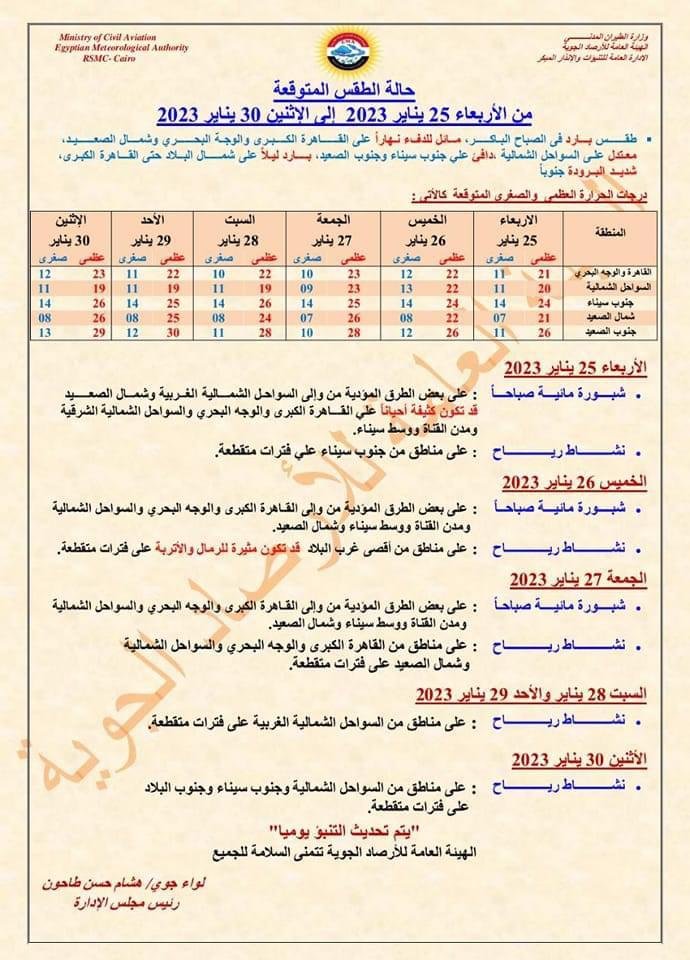 Ministry of Civil Aviation
Egyptian Meteorological Authority
RSMC- Cairo
وزارة الطيران المدني
الهيئة العامة للأرصاد الجوية
الادارة العامة للتنبؤات والإنذار المبكر
حالة الطقس المتوقعة
من الأربعاء 25 يناير 2023 إلى الإثنين 30 يناير 2023
طقس بارد فى الصباح الباكر، مائل للدفء نهاراً على القاهرة الكبرى والوجة البحري وشمال الصعيد،
معتدل على السواحل الشمالية ،دافئ علي جنوب سيناء وجنوب الصعيد، بارد ليلاً على شمال البلاد حتى القاهرة الكبرى،
شديد البرودة جنوباً
درجات الحرارة العظمى والصغرى المتوقعة كالآتى :
المنطقة الاربعاء الخميس الجمعة السبت الأحد الإثنين
25 يناير 26 يناير 27 يناير 28 يناير 29 يناير 30 يناير
عظمى صغرى عظمى صغرى عظمى صغرى عظمى صغرى عظمى صغرى عظمى صغرى
القاهرة والوجه البحري 21 11 22 12 23 10 22 10 22 11 23 12
السواحل الشمالية 20 11 22 13 23 09 19 11 19 11 19 11
جنوب سيناء 24 14 24 14 25 14 26 14 25 14 26 14
شمال الصعيد 21 07 22 08 26 07 24 08 25 08 26 08
جنوب الصعيد 26 11 26 12 28 10 28 11 30 12 29 13
الأربعاء 25 يناير 2023
• شبورة مائية صباحاً : على بعض الطرق المؤدية من وإلى السواحل الشمالية الغربية وشمال الصعيد
قد تكون كثيفة أحياناً علي القاهرة الكبرى والوجه البحري والسواحل الشمالية الشرقية
ومدن القناة ووسط سيناء.
• نشاط رياح : على مناطق من جنوب سيناء علي فترات متقطعة.
الخميس 26 يناير 2023
• شبورة مائية صباحاً : على بعض الطرق المؤدية من وإلى القاهرة الكبرى والوجه البحري والسواحل الشمالية
ومدن القناة ووسط سيناء وشمال الصعيد.
• نشاط رياح : على مناطق من أقصى غرب البلاد قد تكون مثيرة للرمال والأتربة على فترات متقطعة.
الجمعة 27 يناير 2023
• شبورة مائية صباحاً : على بعض الطرق المؤدية من وإلى القاهرة الكبرى والوجه البحري والسواحل الشمالية
ومدن القناة ووسط سيناء وشمال الصعيد.
• نشاط رياح : على مناطق من القاهرة الكبرى والوجه البحري والسواحل الشمالية
وشمال الصعيد على فترات متقطعة.
السبت 28 يناير والأحد 29 يناير 2023
• نشاط رياح : على مناطق من السواحل الشمالية الغربية على فترات متقطعة.
الأثنين 30 يناير 2023
• نشاط رياح : على مناطق من السواحل الشمالية وجنوب سيناء وجنوب البلاد
على فترات متقطعة.
"يتم تحديث التنبؤ يوميا"
الهيئة العامة للأرصاد الجوية تتمنى السلامة للجميع
لواء جوي/ هشام حسن طاحون
رئيس مجلس الإدارة
الهيئة العامة للأرصاد الجوية